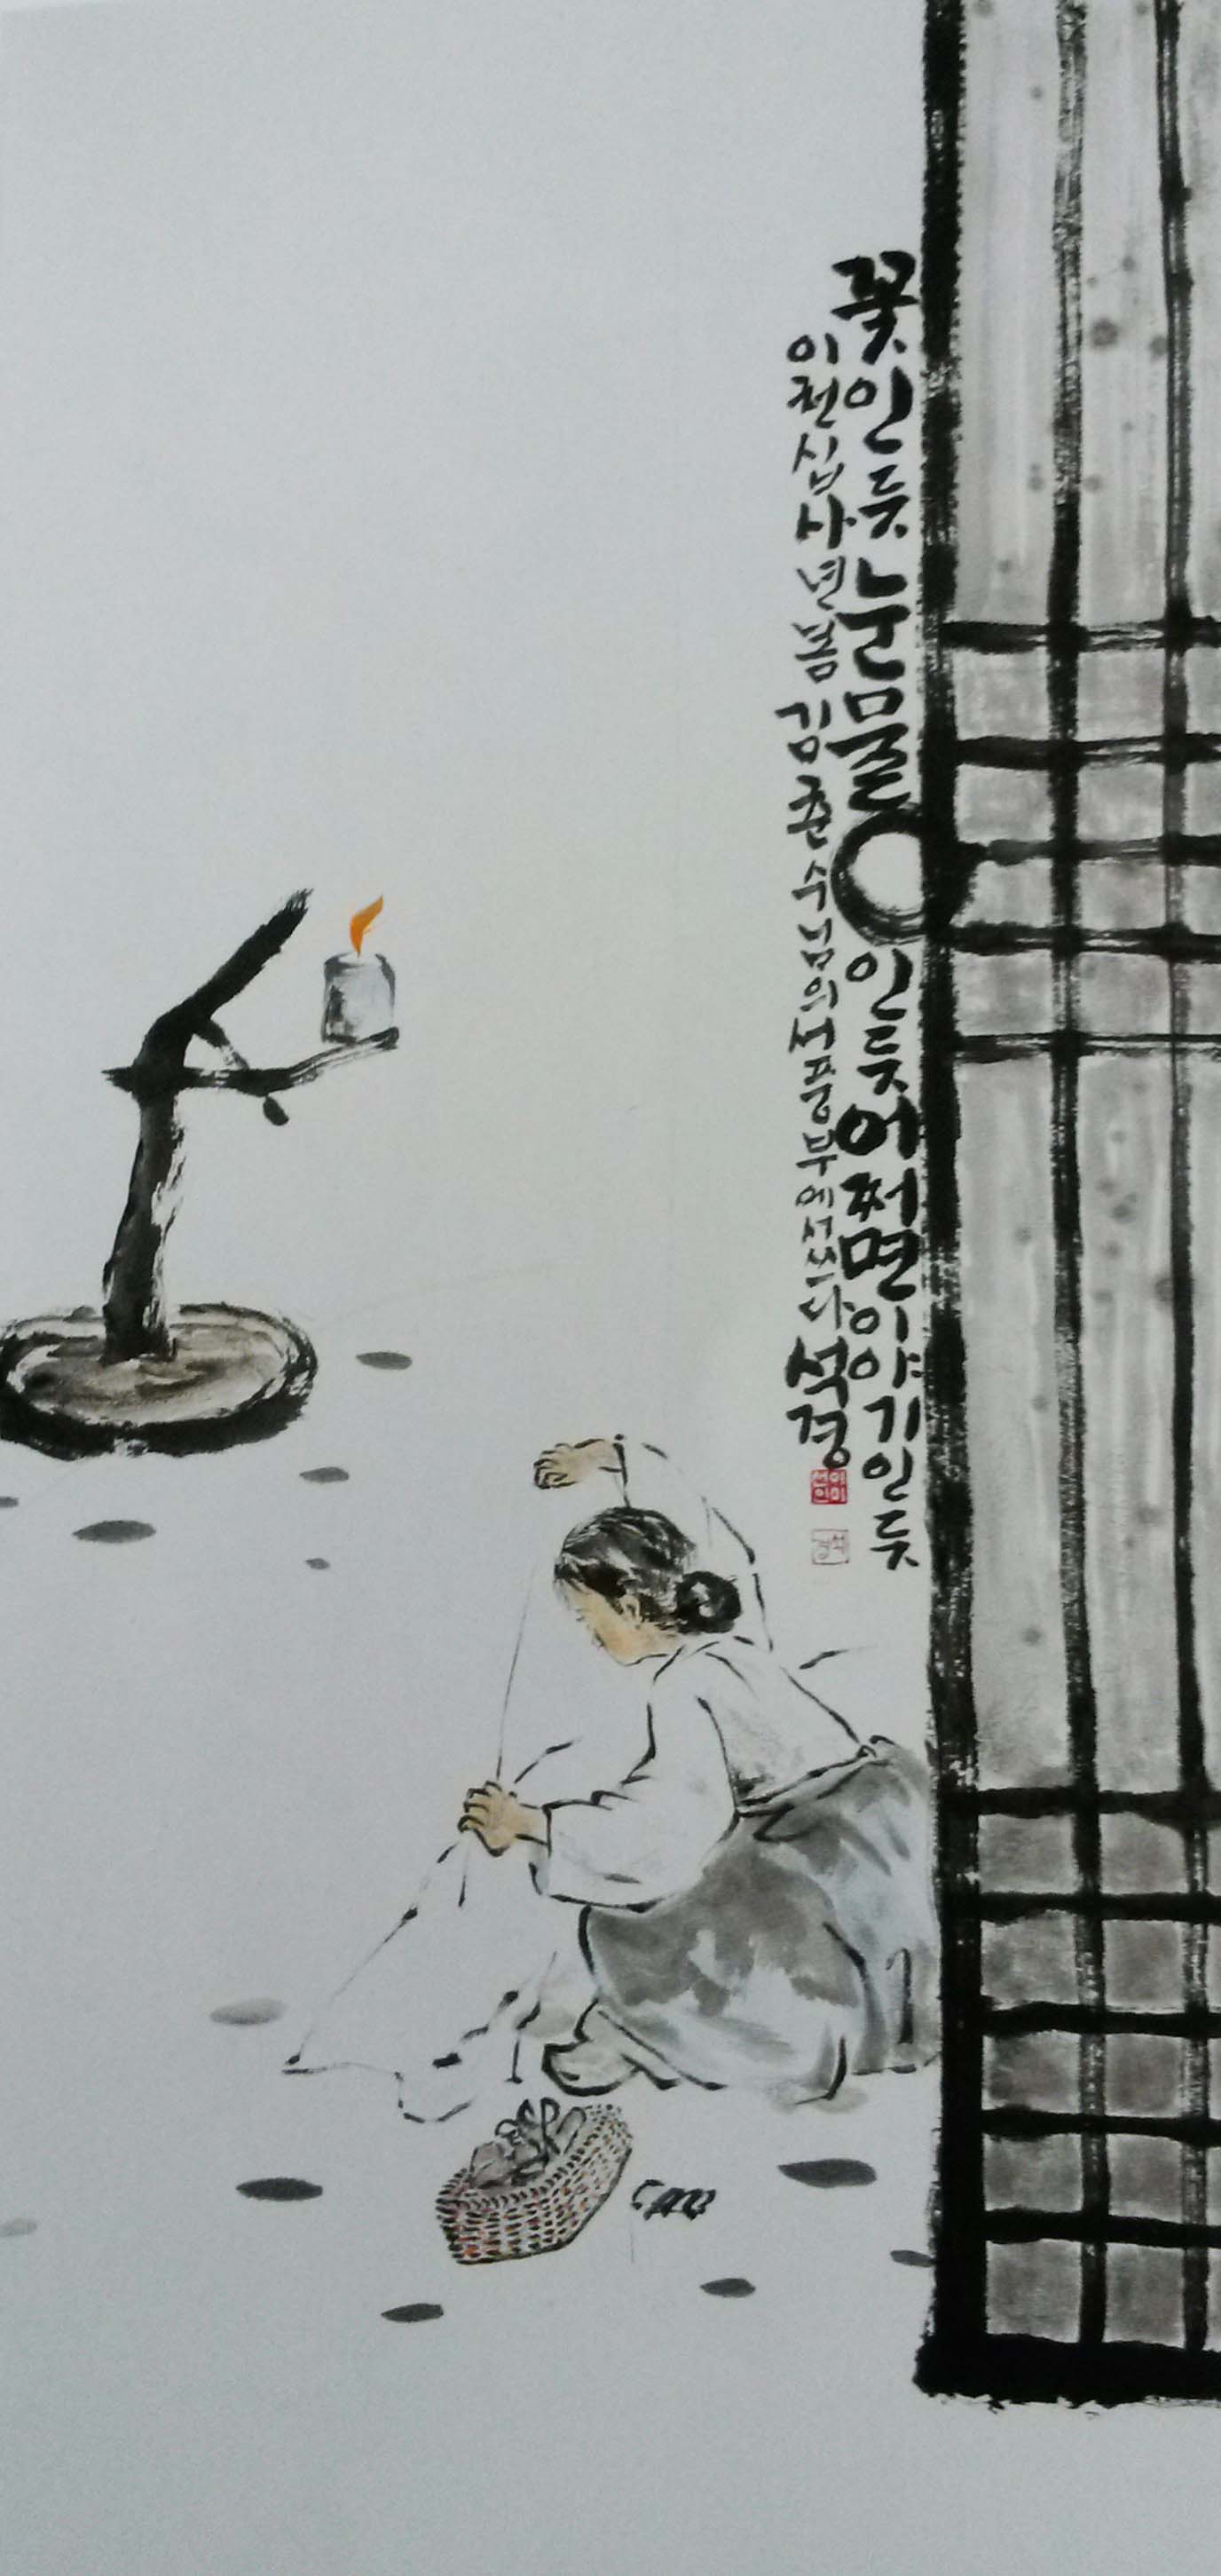 꽃인듯 눈물인듯 어쩌면 이야기인듯
이천십사년 봄 김춘수님의 서풍부에서 쓰다 석경
이미
선인
석경